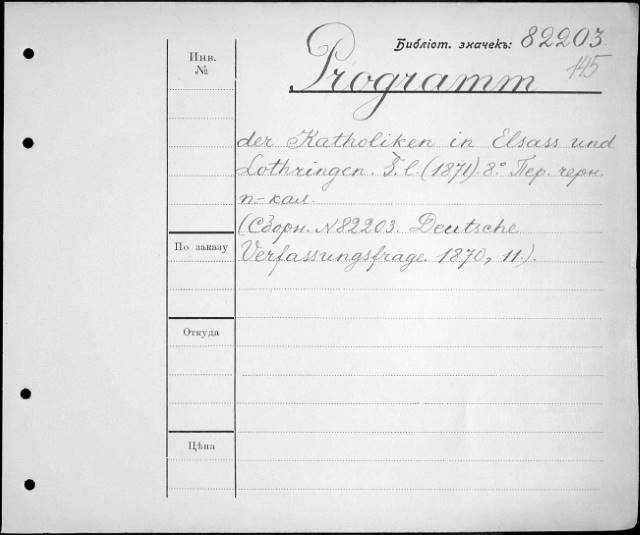 Инв.
№
Библіот. значекъ: 82203
145
Programm
der Katholiken in Elsass und
Lothringen. S. l. (1871). 8.° Пер. черн.
п-кал.
(Сборн. №82203. Deutsche
По заказу
Verfassungsfrage. 1870, 11.).
Откуда
Цѣна